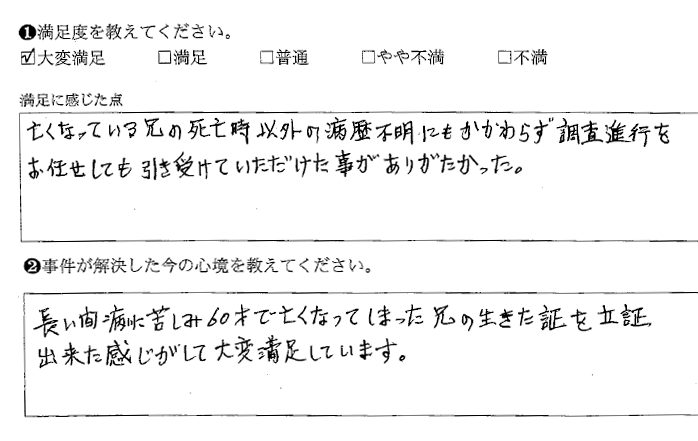 ❶満足度を教えてください。
☑大変満足 □満足 □普通 □やや不満 □不満
満足に感じた点
亡くなっている兄の死亡時以外の病歴不明にもかかわらず調査進行を
お任せしても引き受けていただけた事がありがたかった。
❷事件が解決した今の心境を教えてください。
長い間病に苦しみ60才で亡くなってしまった兄の生きた証を立証
出来た感じがして大変満足しています。